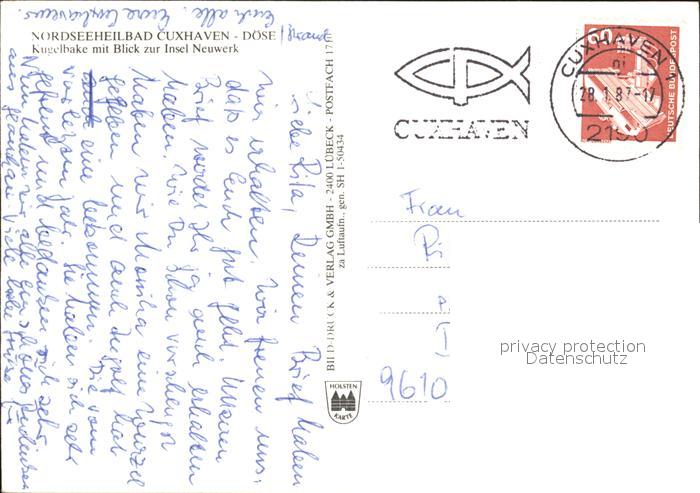 Euch alle. Eure Cuxhavener.
NORDSEEHEILBAD CUXHAVEN - DÖSE
Kugelbake mit Blick zur Insel Neuwerk
Liebe Rita, Deinen Brief haben
wir erhalten. Wir freuen uns,
dass es Euch gut geht. Unseren
Brief werdet Ihr auch erhalten
haben. Wie Du schon
haben wir Monika eine
gegeben und auch hat
eine bekommen. Die vom
vorletzten Jahr. Sie haben sich sehr
gefreut und bedanken sich sehr.
Nun haben wir alle ein schönes
aus Viele liebe Grüße
BILD-DRUCK & VERLAG GMBH - 2400 LÜBECK - POSTFACH 17
za Luftaufn., gen. SH 1-50434
HOLSTEN
KARTE
CUXHAVEN
CUXHAVEN
28.1.87-17
2190
60
DEUTSCHE BUNDESPOST
Frau
I
9610
privacy protection
Datenschutz